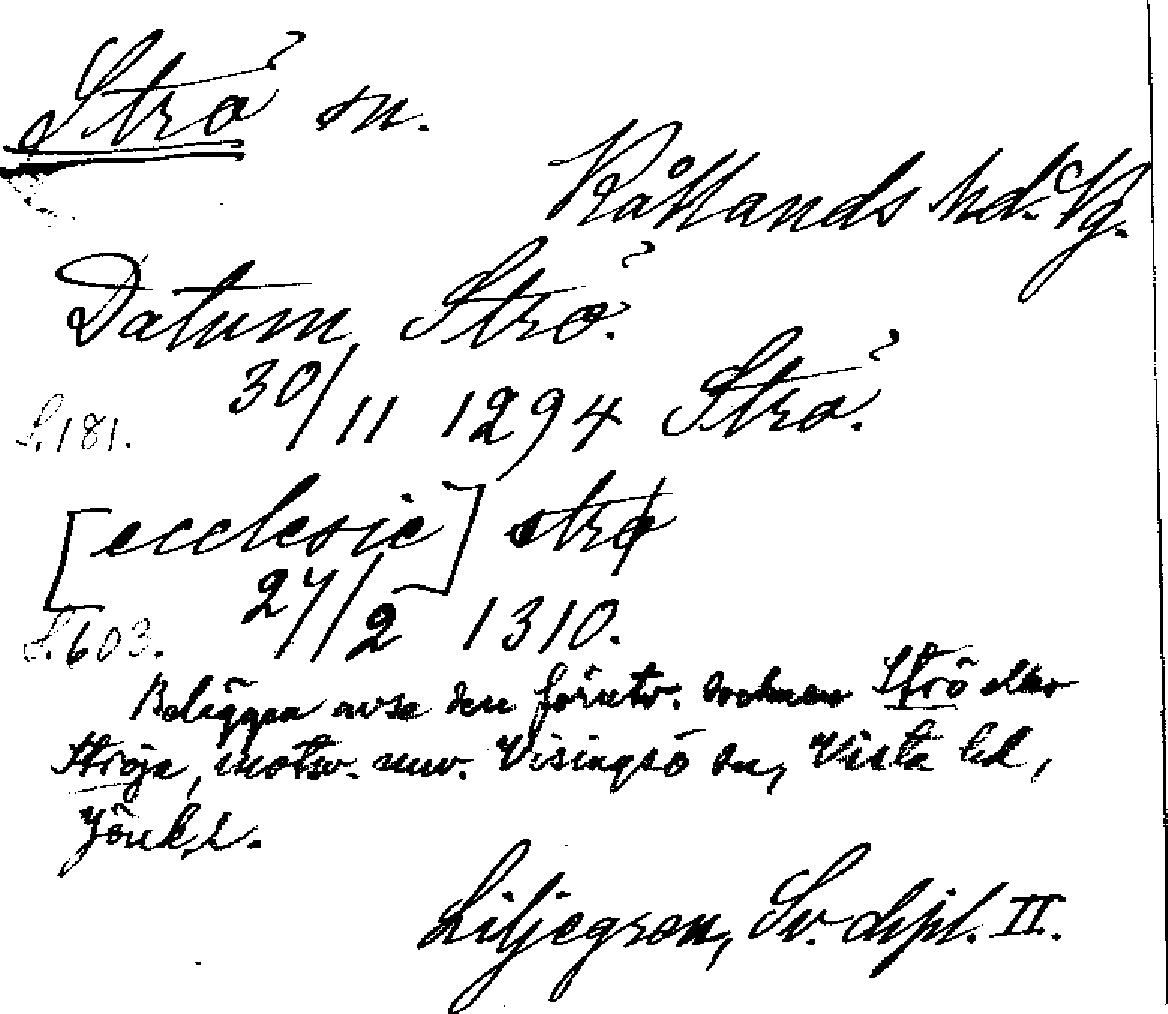 Strö sn.
Kållands hd. Vg.
Datum Strö.
S. 181. 30/11 1294 Strö.
[ecclesie] strø
S. 603. 27/2 1310.
Beläggen avse den förutv. socknen Strö eller
Ströja, motsv. nuv. Visingsö sn, Vista hd,
Jönk. l.
Liljegren, Sv. dipl. II.